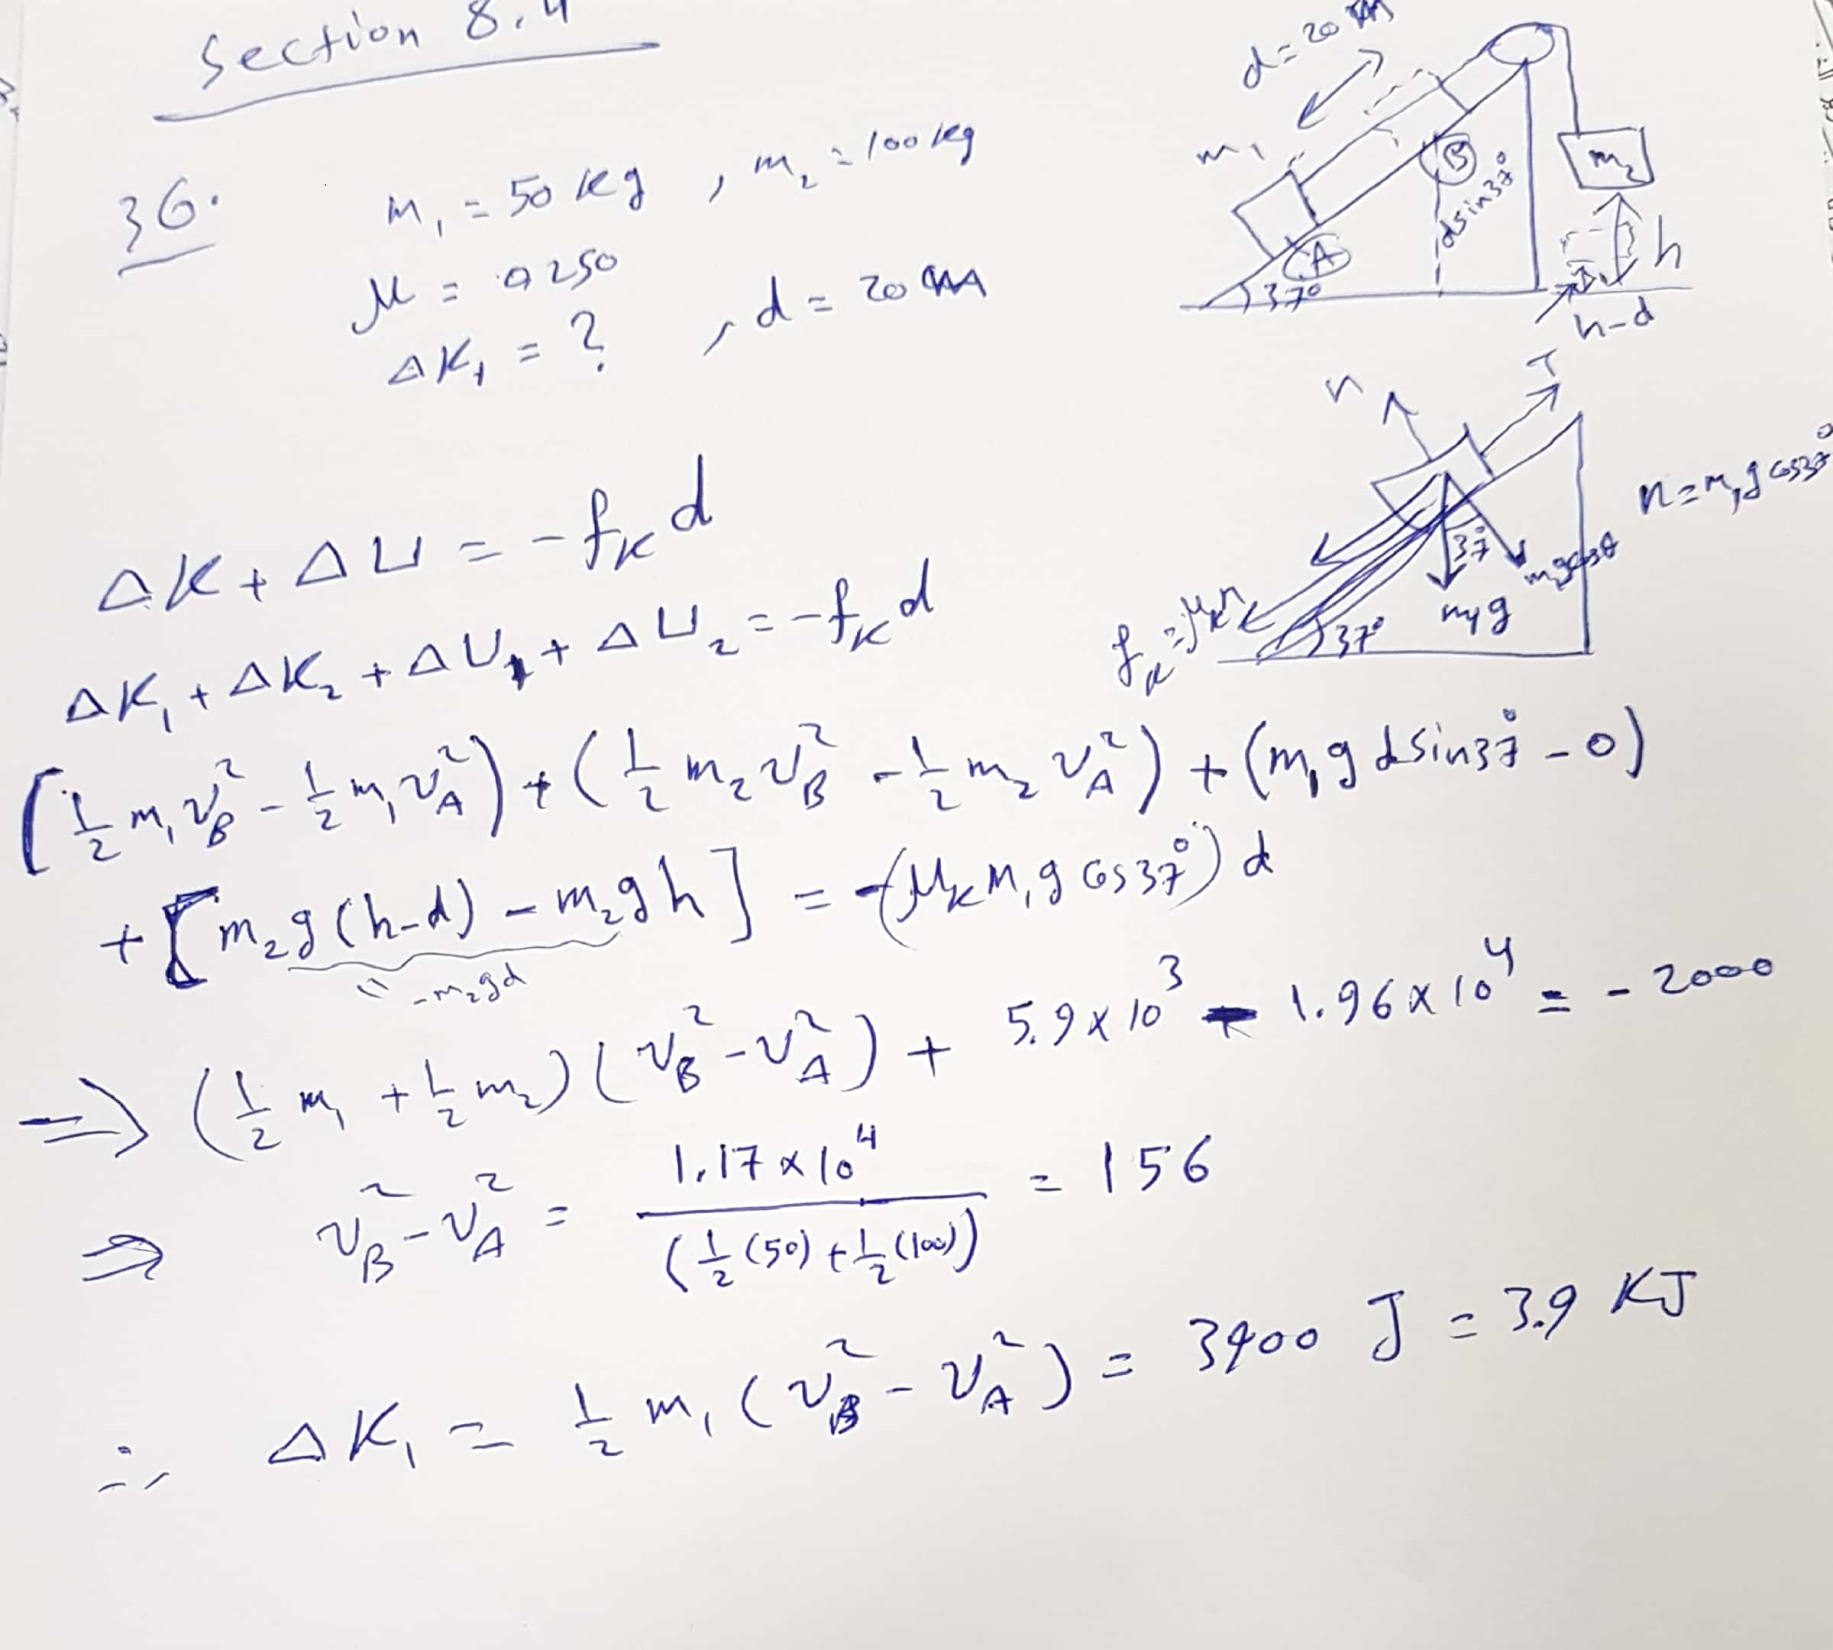 Section 8.4
36.
m₁ = 50 kg , m₂ = 100 kg
μ = 0.250
ΔK₁ = ? , d = 20 m
d = 20 m
m₁
m₂
B
A
d sin37°
37°
h
h-d
n
T
n = m₁g cos37°
37°
mg cosθ
m₁g
fₖ = μₖn
37°
ΔK + ΔU = -fₖd
ΔK₁ + ΔK₂ + ΔU₁ + ΔU₂ = -fₖd
(½ m₁v_B² - ½ m₁v_A²) + (½ m₂v_B² - ½ m₂v_A²) + (m₁g d sin37° - 0)
+ [m₂g(h-d) - m₂gh] = -(μₖm₁g cos37°) d
= -m₂gd
⇒ (½ m₁ + ½ m₂)(v_B² - v_A²) + 5.9 x 10³ - 1.96 x 10⁴ = - 2000
⇒ v_B² - v_A² = 1.17 x 10⁴ / (½(50) + ½(100)) = 156
∴ ΔK₁ = ½ m₁(v_B² - v_A²) = 3900 J = 3.9 KJ